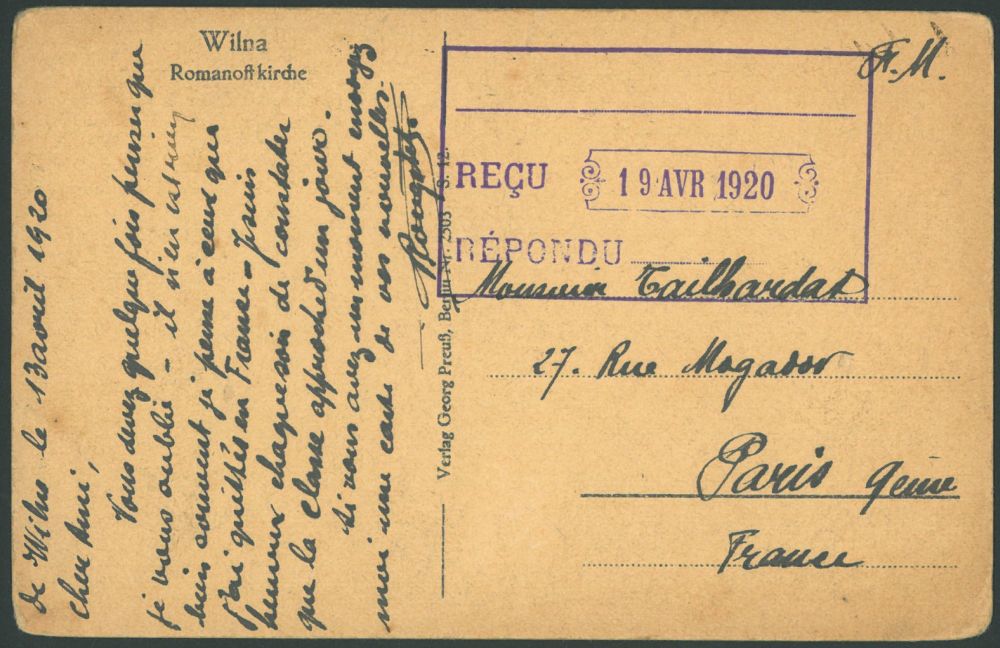 Wilna
Romanoffkirche
de Wilno le 13 avril 1920
cher Ami,
Vous devez quelque fois penser que
je vous oublie - il n'en est rien
bien souvent je pense à ceux que
j'ai quittés en France - puis
heureux chaque soir de constater
que la classe approche d'un jour.
Si vous avez un moment envoyez
moi une carte de vos nouvelles.
Verlag Georg Preuß, Berlin Nr. 2303 S. 12.
F. M.
REÇU 19 AVR 1920
RÉPONDU
Monsieur Tailhardat
27. Rue Mogador
Paris 9eme
France